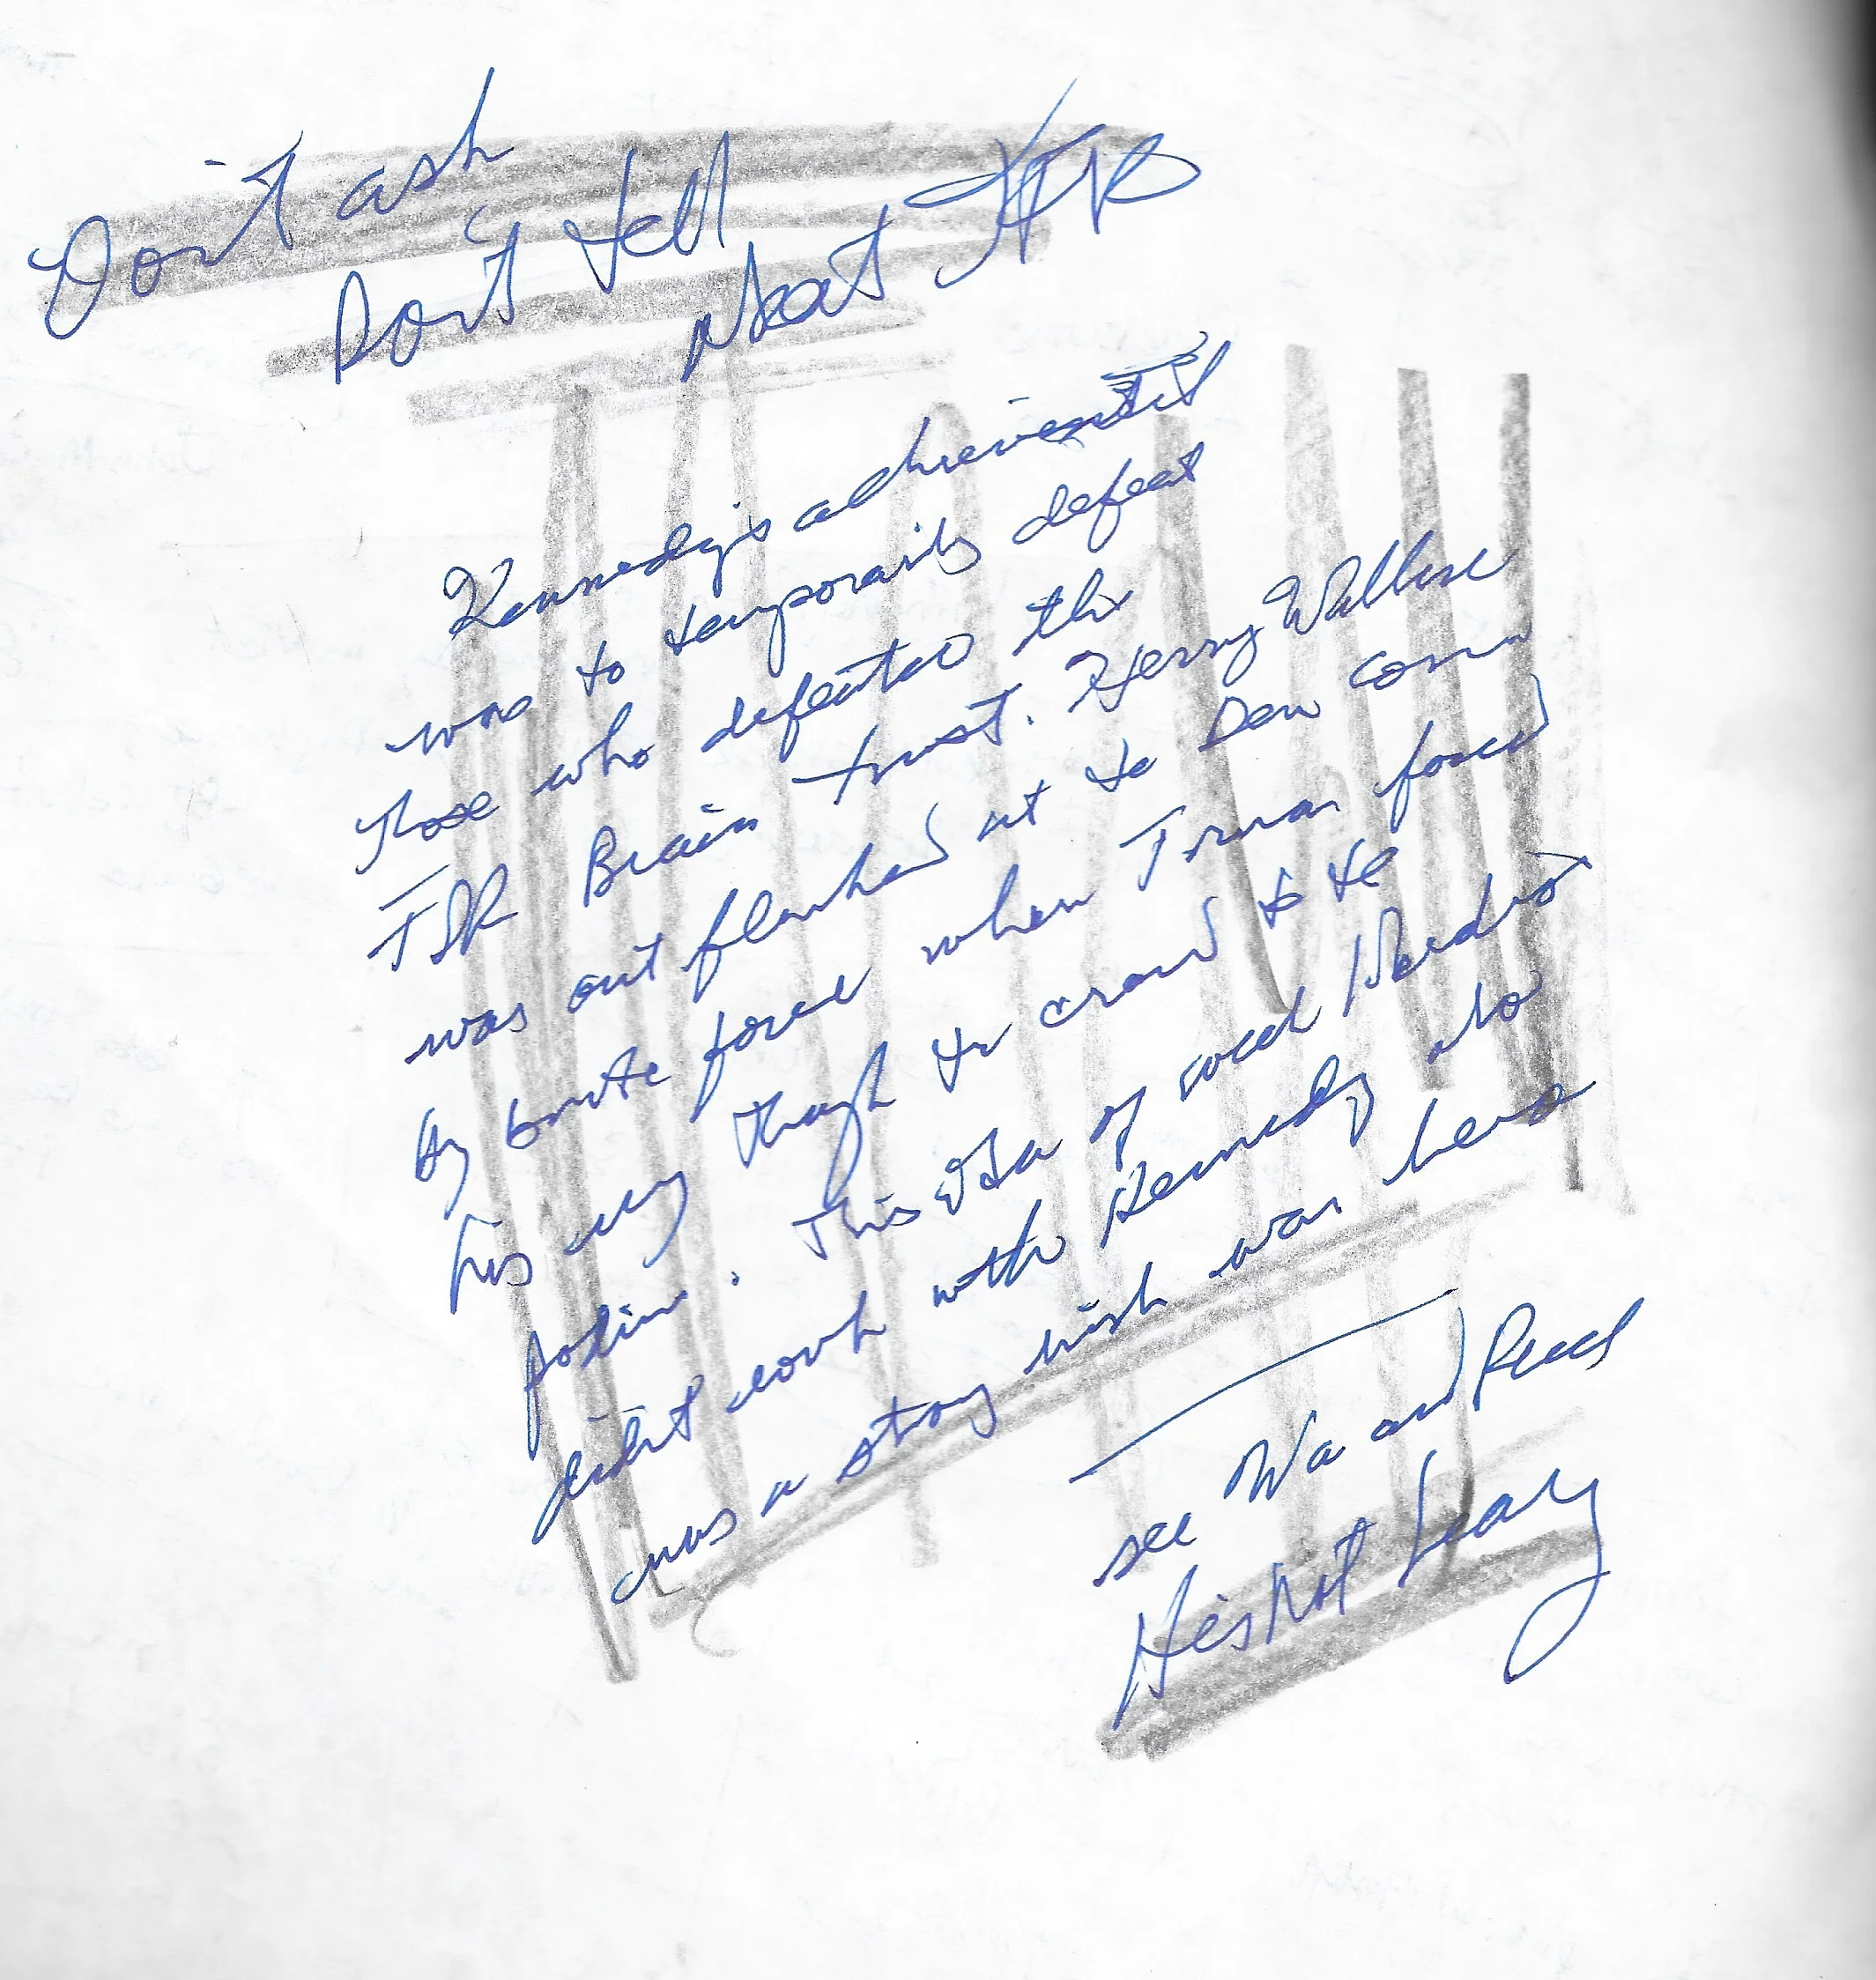 Don't ask
Don't tell
Kennedy's achievement
was to temporarily defeat
those who defeated the
FDR Brain trust. Henry Wallace
was out flanked at te Dem conv
by brute force when Truman forced
his way though te crowd to te
podium. This idea of
didnt work with Kennedy who
was a strong wish was
see Wa and Peace
His Not Leary